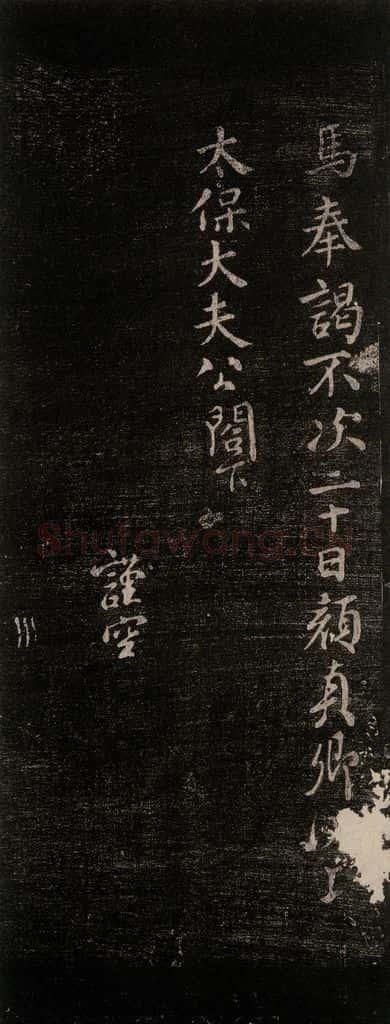 馬奉謁不次二十日顏真卿
太保大夫公閤下
謹空
Shufawang.CN